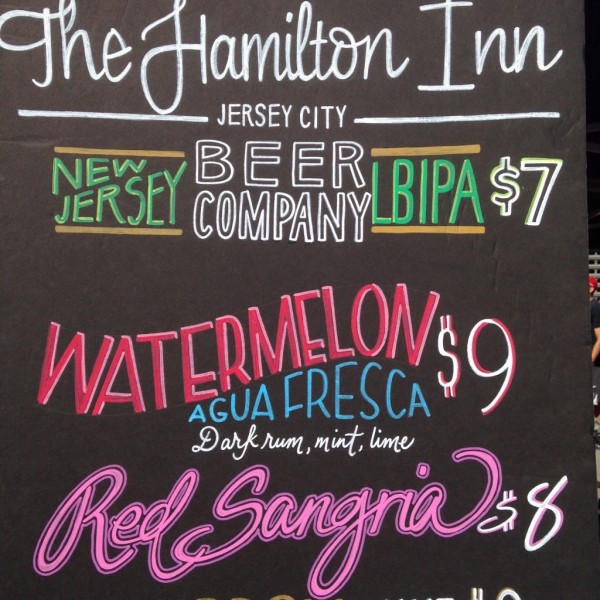 The Hamilton Inn
JERSEY CITY
NEW JERSEY BEER COMPANY LBIPA $7
WATERMELON $9
AGUA FRESCA
Dark rum, mint, lime
Red Sangria $8